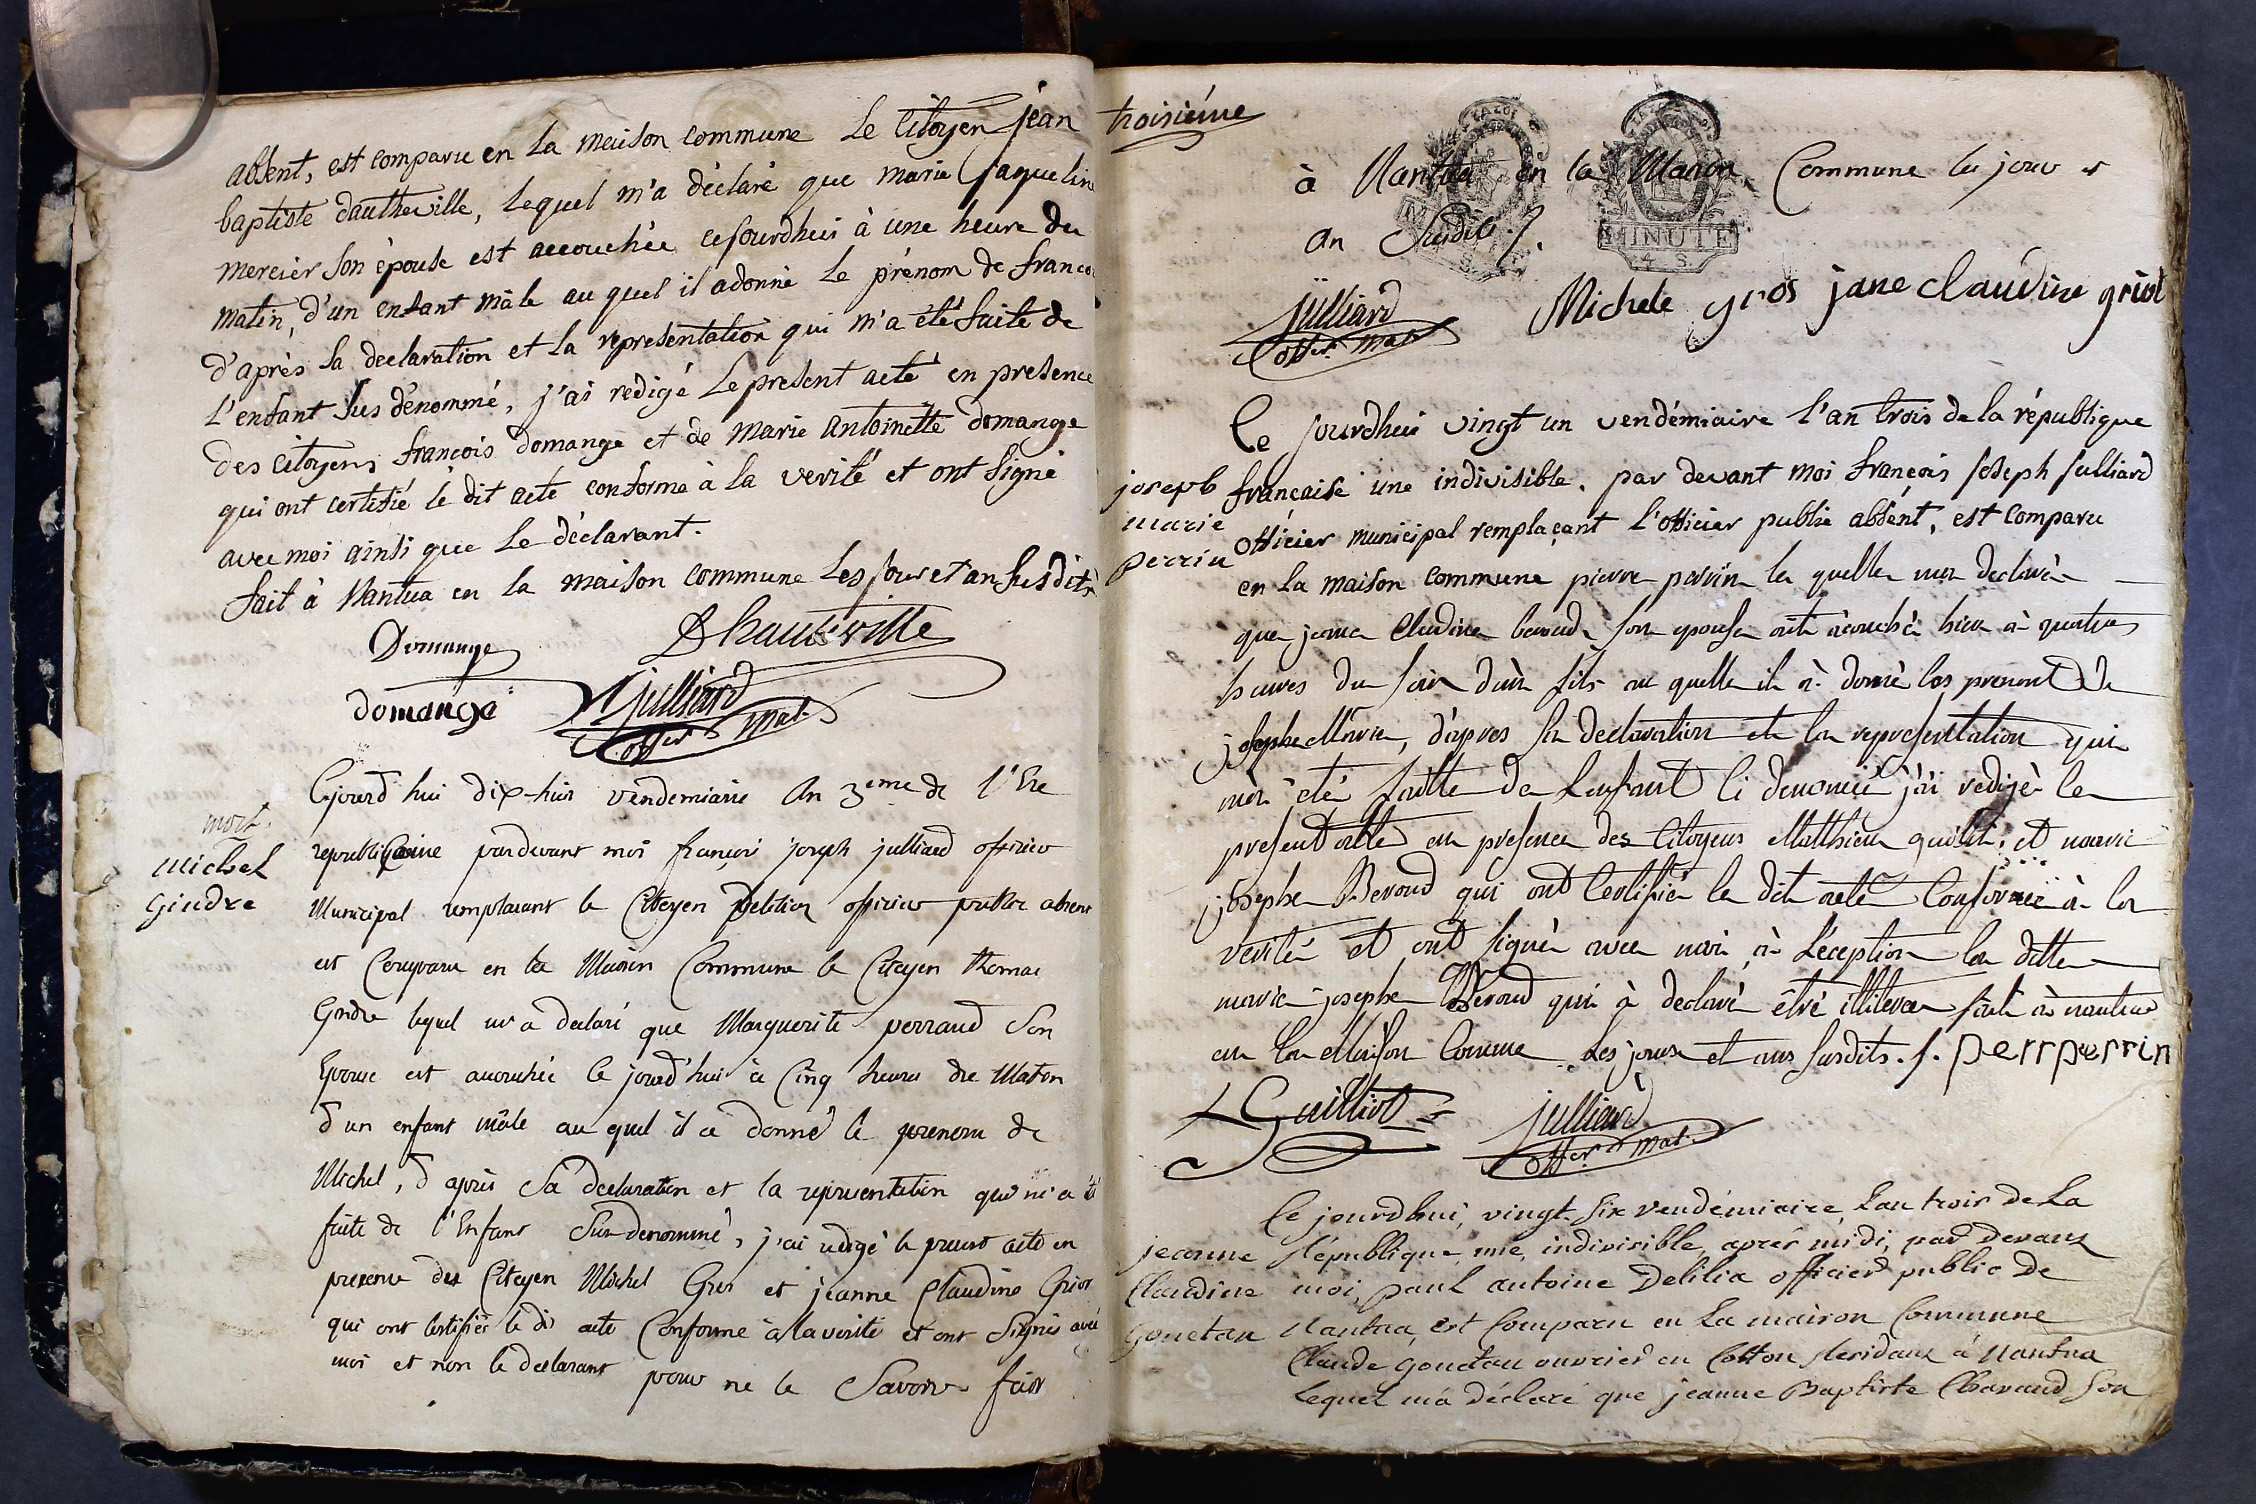 absent, est comparu en la maison commune Le Citoyen jean
baptiste dautheville, lequel m'a déclaré que marie jaqueline
mercier son épouse est accouchée cejourdhui à une heure du
matin, d'un enfant mâle auquel il adonné le prénom de franco
d'après sa declaration et la representation qui m'a été faite de
l'enfant sus dénommé, j'ai redigé le present acte en presence
des citoyens françois domange et de marie antoinette domange
qui ont certifié le dit acte conforme à la verité et ont signé
avec moi ainsi que le déclarant.
fait à Nantua en la maison commune Les jour et an susdits
Domange Dhauteville
domange julliard
offer mal
Cejourd'hui dix-huit vendemiaire An 3eme de l'Ere
mort.
michel
Gindre
republicaine pardevant moi françois joseph julliard officier
Municipal remplacant le Citoyen Delilia officier public absent
est Comparu en la Maison Commune le Citoyen thomas
Gindre lequel m'a declaré que Marguerite perraud Son
Epouse est accouchée ce jourd'hui à Cinq heures du Matin
d'un enfant mâle au quel il a donné le prenom de
Michel, d'après Sa declaration et la representation qui m'a été
faite de l'Enfant Sus denommé, j'ai redigé le present acte en
presence des Citoyen Michel Gros et jeanne Claudine Griot
qui ont Certifiés le dit acte Conforme à la verité et ont Signés avec
moi et non le declarant pour ne le Savoir faire
troisiéme
à Nantua en la Maison Commune les jour et
an Susdits.
MINUTE
4 S.
julliard Michele gros jane claudine griot
offer mal
Ce jourdhui vingt un vendémiaire l'an trois de la république
joseph
marie
perrin
française une indivisible, par devant moi françois joseph julliard
officier municipal remplaçant l'officier public absent, est comparu
en la maison commune pierre perrin le quelle ma declaré
que jeanne Cludine beroud son epouse ait acouché hier à quatre
heures du soir d'un fils au quelle il à donné les prenont de
josephe Marie, d'apres sa declaration et la representation qui
m'a été faitte de Lenfant ci denomé j'ai redigé le
present acte en presence des Citoyens Matthieu quiliot et marie
josephe Beroud qui ont Certifié le dit acte Conforme à la
verité et ont signé avec moi, à L'eception la ditte
marie josephe Beroud qui à declaré être illiteree fait à nantua
en la Maison Comune Les jours et ans susdits. perrperrin
Guilliot julliard
offer mal
Ce jourdhui, vingt Six vendémiaire, Lan trois de La
jeanne
Claudine
gonetan
République, une, indivisible, après midi, par devant
moi, paul antoine Delilia officier public de
Nantua, est Comparu en La maison Commune
Claude gonetan ouvrier en Cotton Residant à Nantua
Lequel m'a déclaré que jeanne Baptiste Chavaud Son